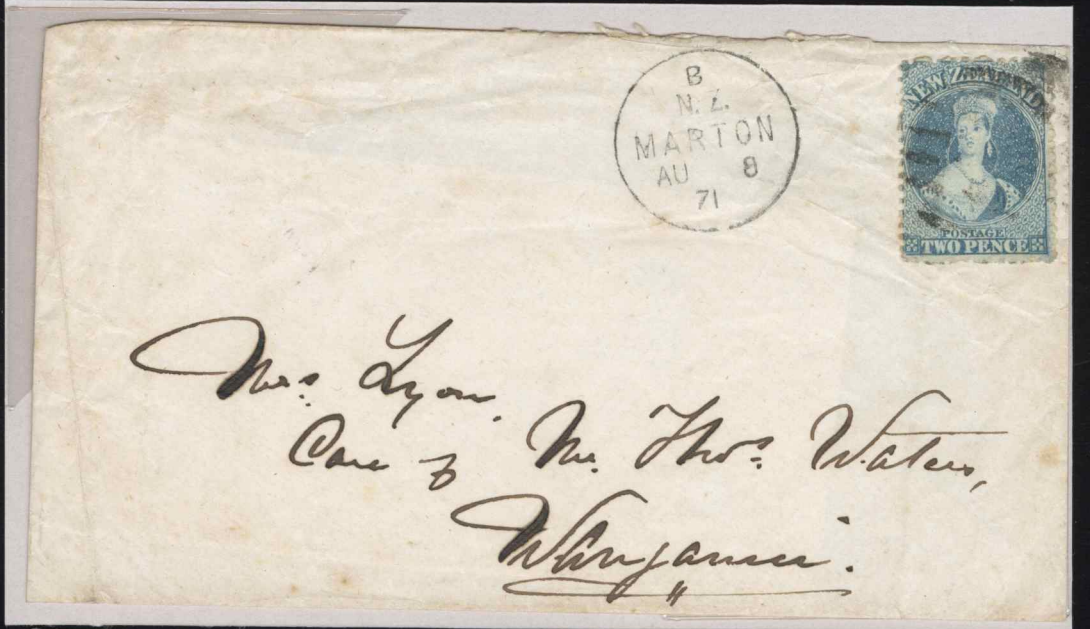 B
N.Z.
MARTON
AU 8
71
NEW ZEALAND
POSTAGE
TWO PENCE
Mrs. Lyon,
Care of Mr. Thos. Waters,
Wanganui.